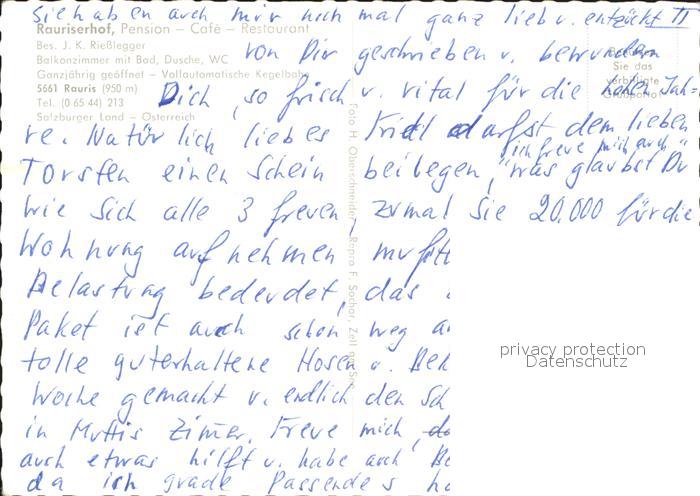 sie haben auch mir noch mal ganz lieb u. entzückt II
Rauriserhof, Pension – Café – Restaurant
Bes. J. K. Rießlegger
von Dir geschrieben u. bewundern
Balkonzimmer mit Bad, Dusche, WC
Ganzjährig geöffnet – Vollautomatische Kegelbahn
Sie das
5661 Rauris (950 m)
Tel. (0 65 44) 213
Salzburger Land – Österreich
Dich, so frisch u. vital für die hohen Jah-
re. Natürlich liebes Friedl darfst dem lieben
"ich freue mich auch"
Torsten einen Schein beilegen, was glaubst Du
wie sich alle 3 freuen, zumal sie 20.000 für die
Wohnung aufnehmen
Belastung bedeudet, das
Paket ist auch schon weg
tolle guterhaltene Hosen u.
Woche gemacht u. endlich den
in Muttis Zimer. Freue mich,
auch etwas hilft u. habe auch
da ich grade Passendes
Foto H. Oberschneider, Repro F. Sochor, Zell am See
privacy protection
Datenschutz